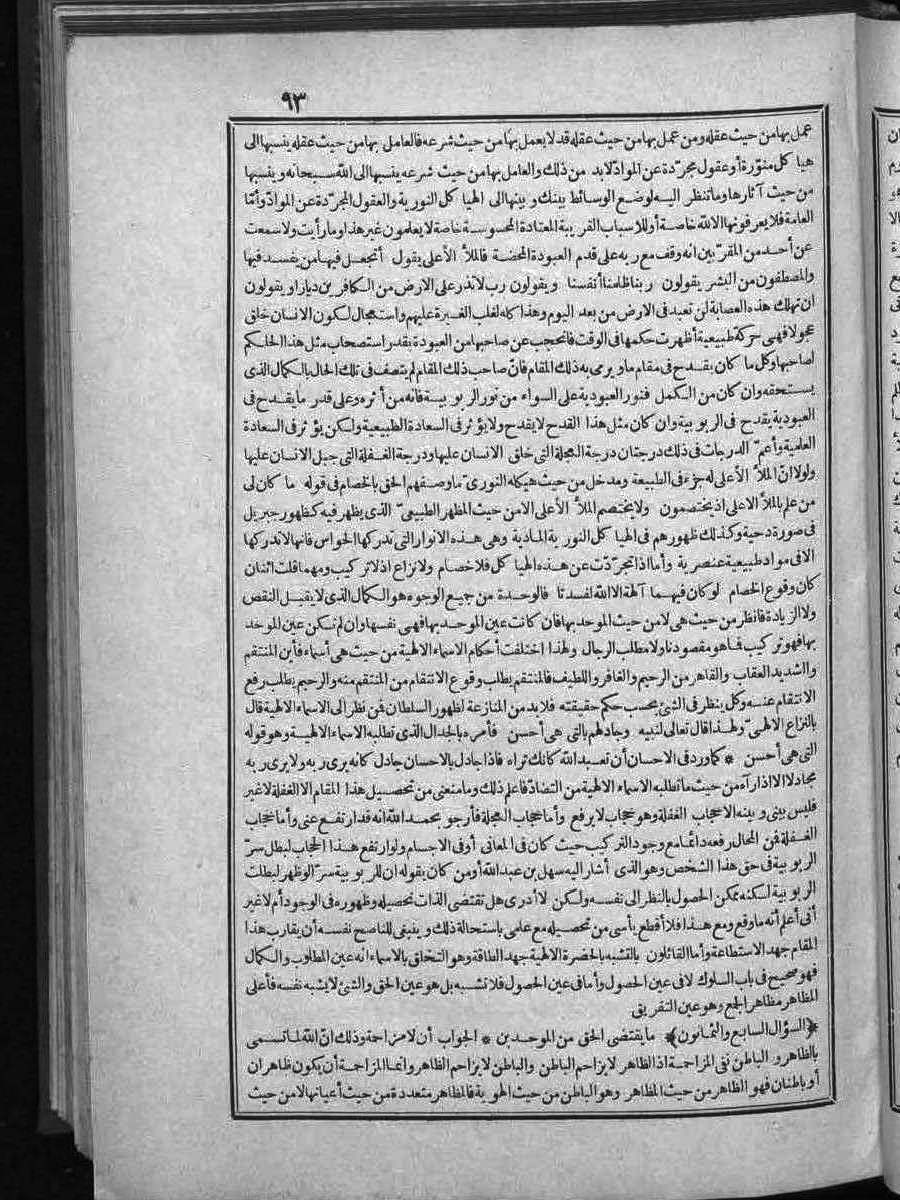 ٩٣
عمل بها من حيث عقله ومن عمل بها من حيث عقله قد لا يعمل بها من حيث شرعه فالعامل بها من حيث عقله ينسبها الى
هيا كل منوّرة أو عقول مجرّدة عن الموادّ لابد من ذلك والعامل بها من حيث شرعه ينسبها الى الله سبحانه وينسبها
من حيث آثارها وما تنظر اليه لوضع الوسائط بينك وبينها الى الهيا كل النورية والعقول المجرّدة عن الموادّ وأمّا
العامة فلا يعرفونها الا لله خاصة أو للاسباب القريبة المعتادة المحسوسة خاصة لا يعلمون غير هذا وما رأيت ولا سمعت
عن أحد من المقرّبين انه وقف مع ربه على قدم العبودة المحضة فالملأ الأعلى يقول أتجعل فيها من يفسد فيها
والمصطفون من البشر يقولون ربنا ظلمنا أنفسنا ويقولون رب لا تذر على الارض من الكافرين ديارا ويقولون
ان تهلك هذه العصابة لن تعبد فى الارض من بعد اليوم وهذا كله لغلب الغيرة عليهم واستعجال لكون الانسان خلق
عجولا فهى حركة طبيعية أظهرت حكمها فى الوقت فانحجب عن صاحبها من العبودة بقدر استصحاب مثل هذا الحكم
لصاحبها وكل ما كان يقدح فى مقام ما ويرمى به ذلك المقام فانّ صاحب ذلك المقام لم يتصف فى تلك الحال بالكمال الذى
يستحقه وان كان من الكمل فنور العبودية على السواء من نور الربوبية فانه من أثره وعلى قدر ما يقدح فى
العبودية يقدح فى الربوبية وان كان مثل هذا القدح لا يقدح ولا يؤثر فى السعادة الطبيعية ولكن يؤثر فى السعادة
العلمية وأعمّ الدرجات فى ذلك درجتان درجة العجلة التى خلق الانسان عليها ودرجة الغفلة التى جبل الانسان عليها
ولولا انّ الملأ الأعلى له جزء فى الطبيعة ومدخل من حيث هيكله النورىّ ما وصفهم الحق بالخصام فى قوله ما كان لى
من علم بالملأ الاعلى اذ يختصمون ولا يختصم الملأ الأعلى الا من حيث المظهر الطبيعىّ الذى يظهر فيه كظهور جبريل
فى صورة دحية وكذلك ظهورهم فى الهيا كل النورية المادية وهى هذه الانوار التى تدركها الحواس فانها لا تدركها
الا فى موادّ طبيعية عنصرية وأما اذا تجرّدت عن هذه الهيا كل فلا خصام ولا نزاع اذ لا تركيب ومهما قلت اثنان
كان وقوع الخصام لو كان فيهما آلهة الا الله لفسدتا فالوحدة من جميع الوجوه هو الكمال الذى لا يقبل النقص
ولا الزيادة فانظر من حيث هى لا من حيث الموحد بها فان كانت عين الموحد بها فهى نفسها وان لم تكن عين الموحد
بها فهو تركيب فما هو مقصودنا ولا مطلب الرجال ولهذا اختلفت أحكام الاسماء الالهية من حيث هى أسماء فأين المنتقم
والشديد العقاب والقاهر من الرحيم والغافر واللطيف فالمنتقم يطلب وقوع الانتقام من المنتقم منه والرحيم يطلب رفع
الانتقام عنه وكل ينظر فى الشئ بحسب حكم حقيقته فلا بد من المنازعة لظهور السلطان فمن نظر الى الاسماء الالهية قال
بالنزاع الالهىّ ولهذا قال تعالى لنبيه وجادلهم بالتى هى أحسن فأمره بالجدال الذى تطلبه الاسماء الالهية وهو قوله
التى هى أحسن * كما ورد فى الاحسان أن تعبد الله كانك تراه فاذا جادل بالاحسان جادل كانه يرى ربه ولا يرى ربه
مجادلا الا اذا رآه من حيث ما تطلبه الاسماء الالهية من التضادّ فاعلم ذلك وما منعنى من تحصيل هذا المقام الا الغفلة لا غير
فليس بينى وبينه الا حجاب الغفلة وهو حجاب لا يرفع وأما حجاب العجلة فأرجو بحمد الله انه قد ارتفع عنى وأما حجاب
الغفلة فمن المحال رفعه دائما مع وجود التركيب حيث كان فى المعانى أو فى الاجسام ولو ارتفع هذا الحجاب لبطل سرّ
الربوبية فى حق هذا الشخص وهو الذى أشار اليه سهل بن عبد الله أو من كان بقوله ان للربوبية سرّا لو ظهر لبطلت
الربوبية لكنه ممكن الحصول بالنظر الى نفسه ولكن لا أدرى هل تقتضى الذات تحصيله وظهوره فى الوجود أم لا غير
أنى أعلم أنه ما وقع ومع هذا فلا أقطع يأسى من تحصيله مع علمى باستحالة ذلك وينبغى للناصح نفسه أن يقارب هذا
المقام جهد الاستطاعة وأما القائلون بالتشبه بالحضرة الالهية جهد الطاقة وهو التخلق بالاسماء انه عين المطلوب والكمال
فهو صحيح فى باب السلوك لا فى عين الحصول وأما فى عين الحصول فلا تشبه بل هو عين الحق والشئ لا يشبه نفسه فأعلى
المظاهر مظاهر الجمع وهو عين التفريق
﴿السؤال السابع والثمانون﴾ ما يقتضى الحق من الموحدين * الجواب أن لا مزاحمة وذلك انّ الله لما تسمى
بالظاهر والباطن نفى المزاحمة اذ الظاهر لا يزاحم الباطن والباطن لا يزاحم الظاهر وانما المزاحمة أن يكون ظاهران
أو باطنان فهو الظاهر من حيث المظاهر وهو الباطن من حيث الهوية فالمظاهر متعددة من حيث أعيانها لا من حيث